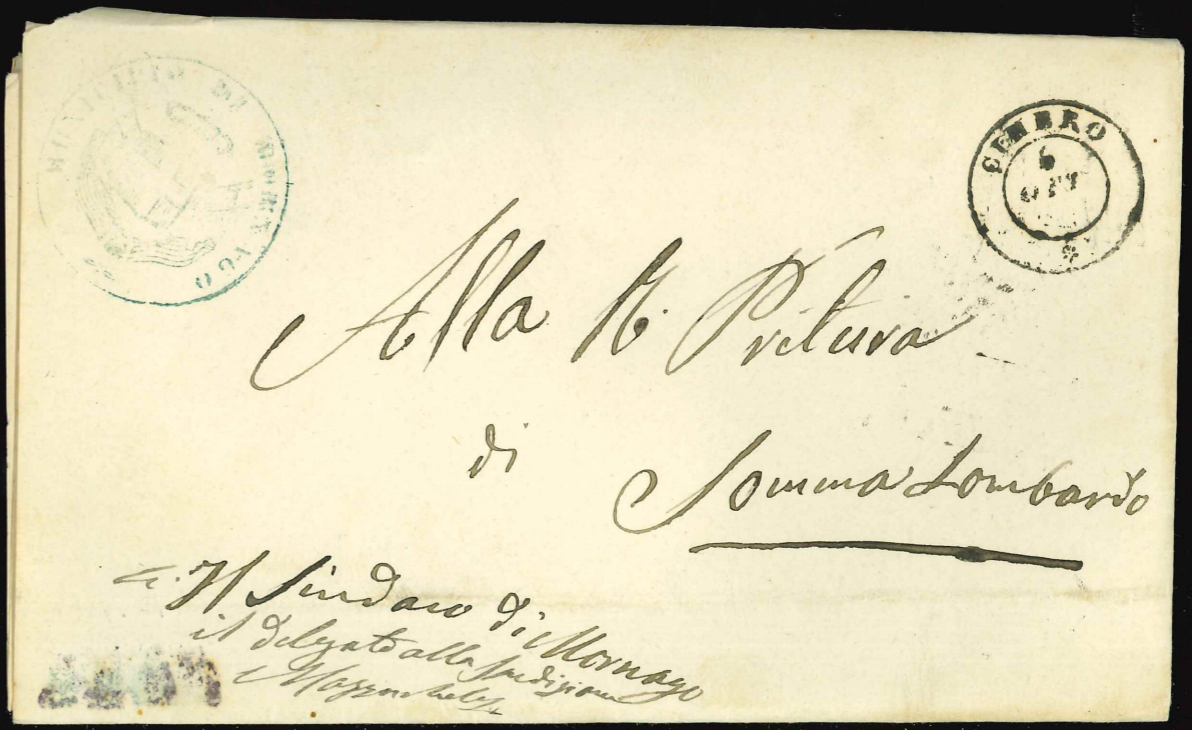 MUNICIPIO DI
CEMBRO
OTT
Alla R. Pretura
di
Somma Lombardo
Il Sindaco di Mornago
il delegato alla spedizione